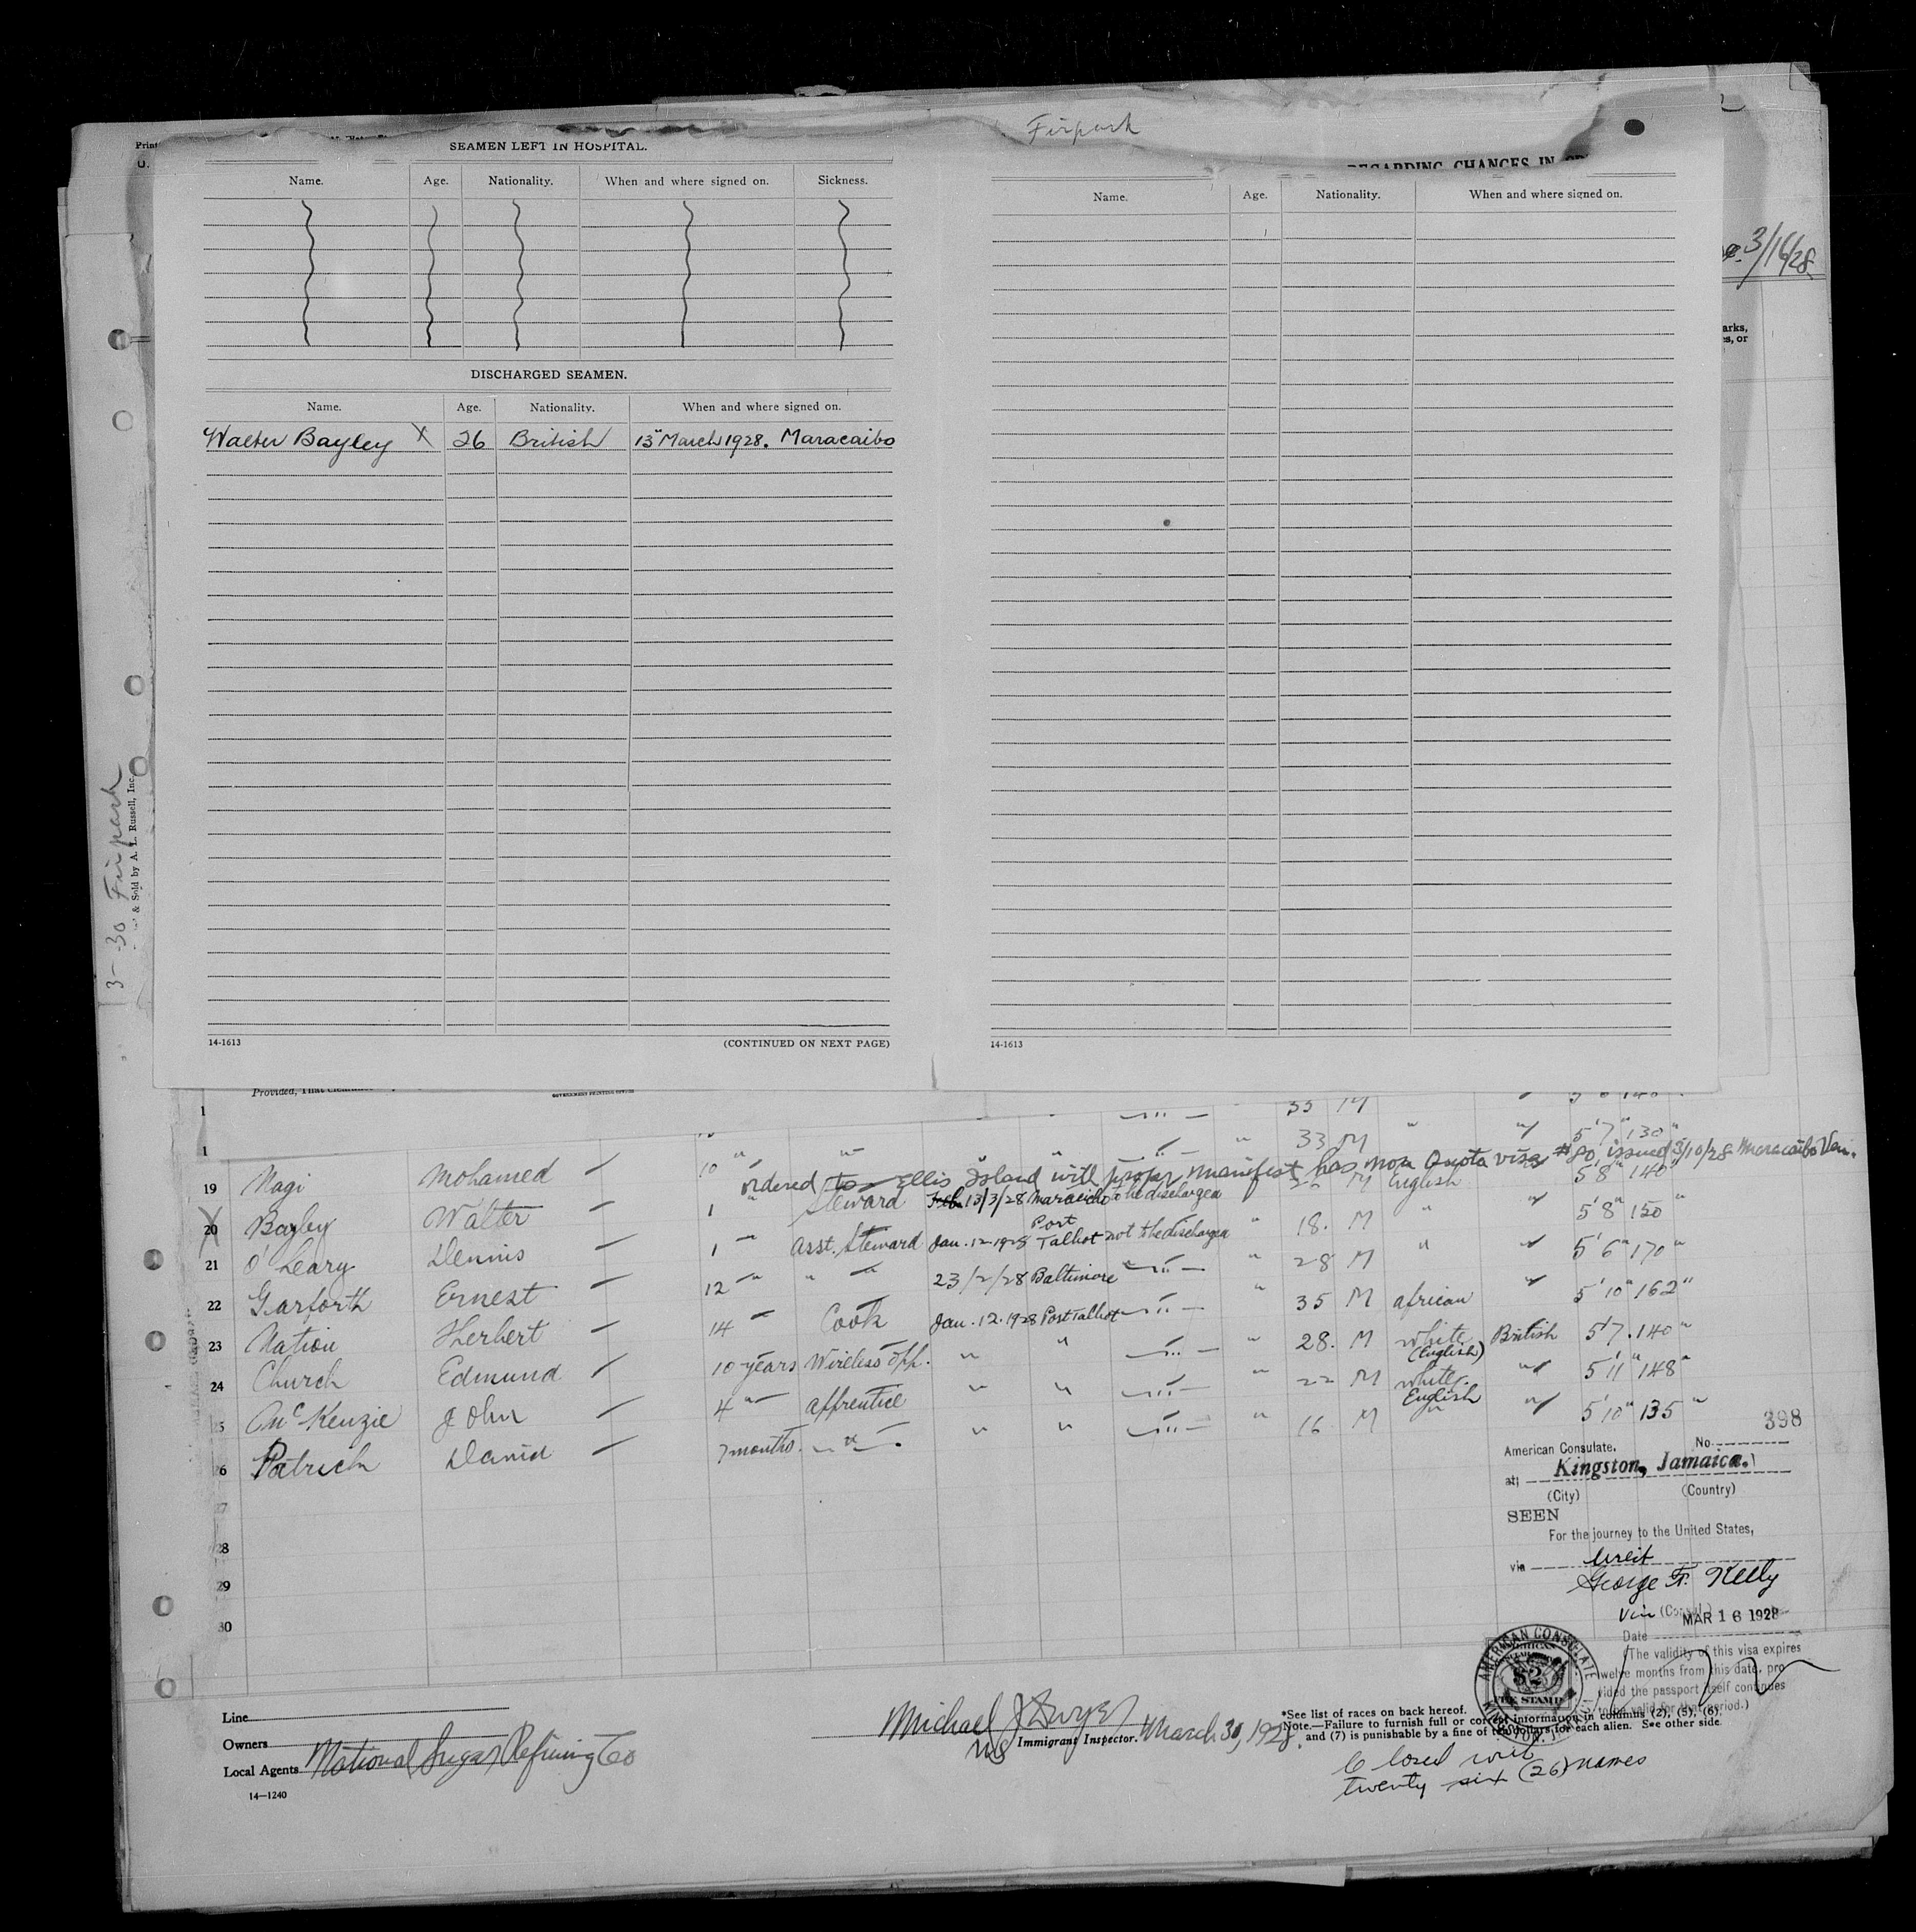 Firpark
SEAMEN LEFT IN HOSPITAL.
Name. Age. Nationality. When and where signed on. Sickness.
DISCHARGED SEAMEN.
Name. Age. Nationality. When and where signed on.
Walter Bayley X 26 British 13" March 1928. Maracaibo
14-1613 (CONTINUED ON NEXT PAGE)
REGARDING CHANGES IN
Name. Age. Nationality. When and where signed on.
14-1613
3/16/28
arks,
es, or
3-30 Firpark
& Sold by A. L. Russell, Inc.
Provided, That
33 M
33 M " " 5'7" 130"
19 Nagi Mohamed 10 " "
ordered to Ellis Island with proper manifest has non Quota visa #80 issued 3/10/28 Maracaibo Ven.
X 20 Bayley Walter 1 " Steward 13/3/28 Maracaibo to be discharged M English 5'8" 140"
21 O'Leary Dennis 1 " Asst. Steward Jan. 12. 1928 Port Talbot not to be discharged " 18. M " " 5'8" 150"
22 Garforth Ernest 12 " " " 23/2/28 Baltimore " " 28 M " " 5'6" 170"
23 Nation Herbert 14 " Cook Jan. 12. 1928 Port Talbot " " 35 M african " 5'10" 162"
24 Church Edmund 10 years Wireless Opp. " " " " 28. M white (English) British 5'7. 140"
5 McKenzie John 4 " apprentice " " " " 22 M white English " 5'11" 148"
6 Patrick David 7 months. " " " " " 16 M " " 5'10" 135"
27
28
29
30
398
American Consulate. No.
at; Kingston, Jamaica.
(City) (Country)
SEEN
For the journey to the United States,
via
George F. Kelly
Vice (Consul)
MAR 16 1928
Date
(The validity of this visa expires
twelve months from this date, pro-
vided the passport itself continues
to be valid for that period.)
AMERICAN CONSULATE
$2
FEE STAMP
KINGSTON, JAMAICA
Line
Owners
Local Agents National Sugar Refining Co
14-1240
Michael J Dwyer March 30, 1928.
US Immigrant Inspector.
*See list of races on back hereof.
Note.—Failure to furnish full or correct information in columns (2), (5), (6),
and (7) is punishable by a fine of ten dollars for each alien. See other side.
Closed with
twenty six (26) names